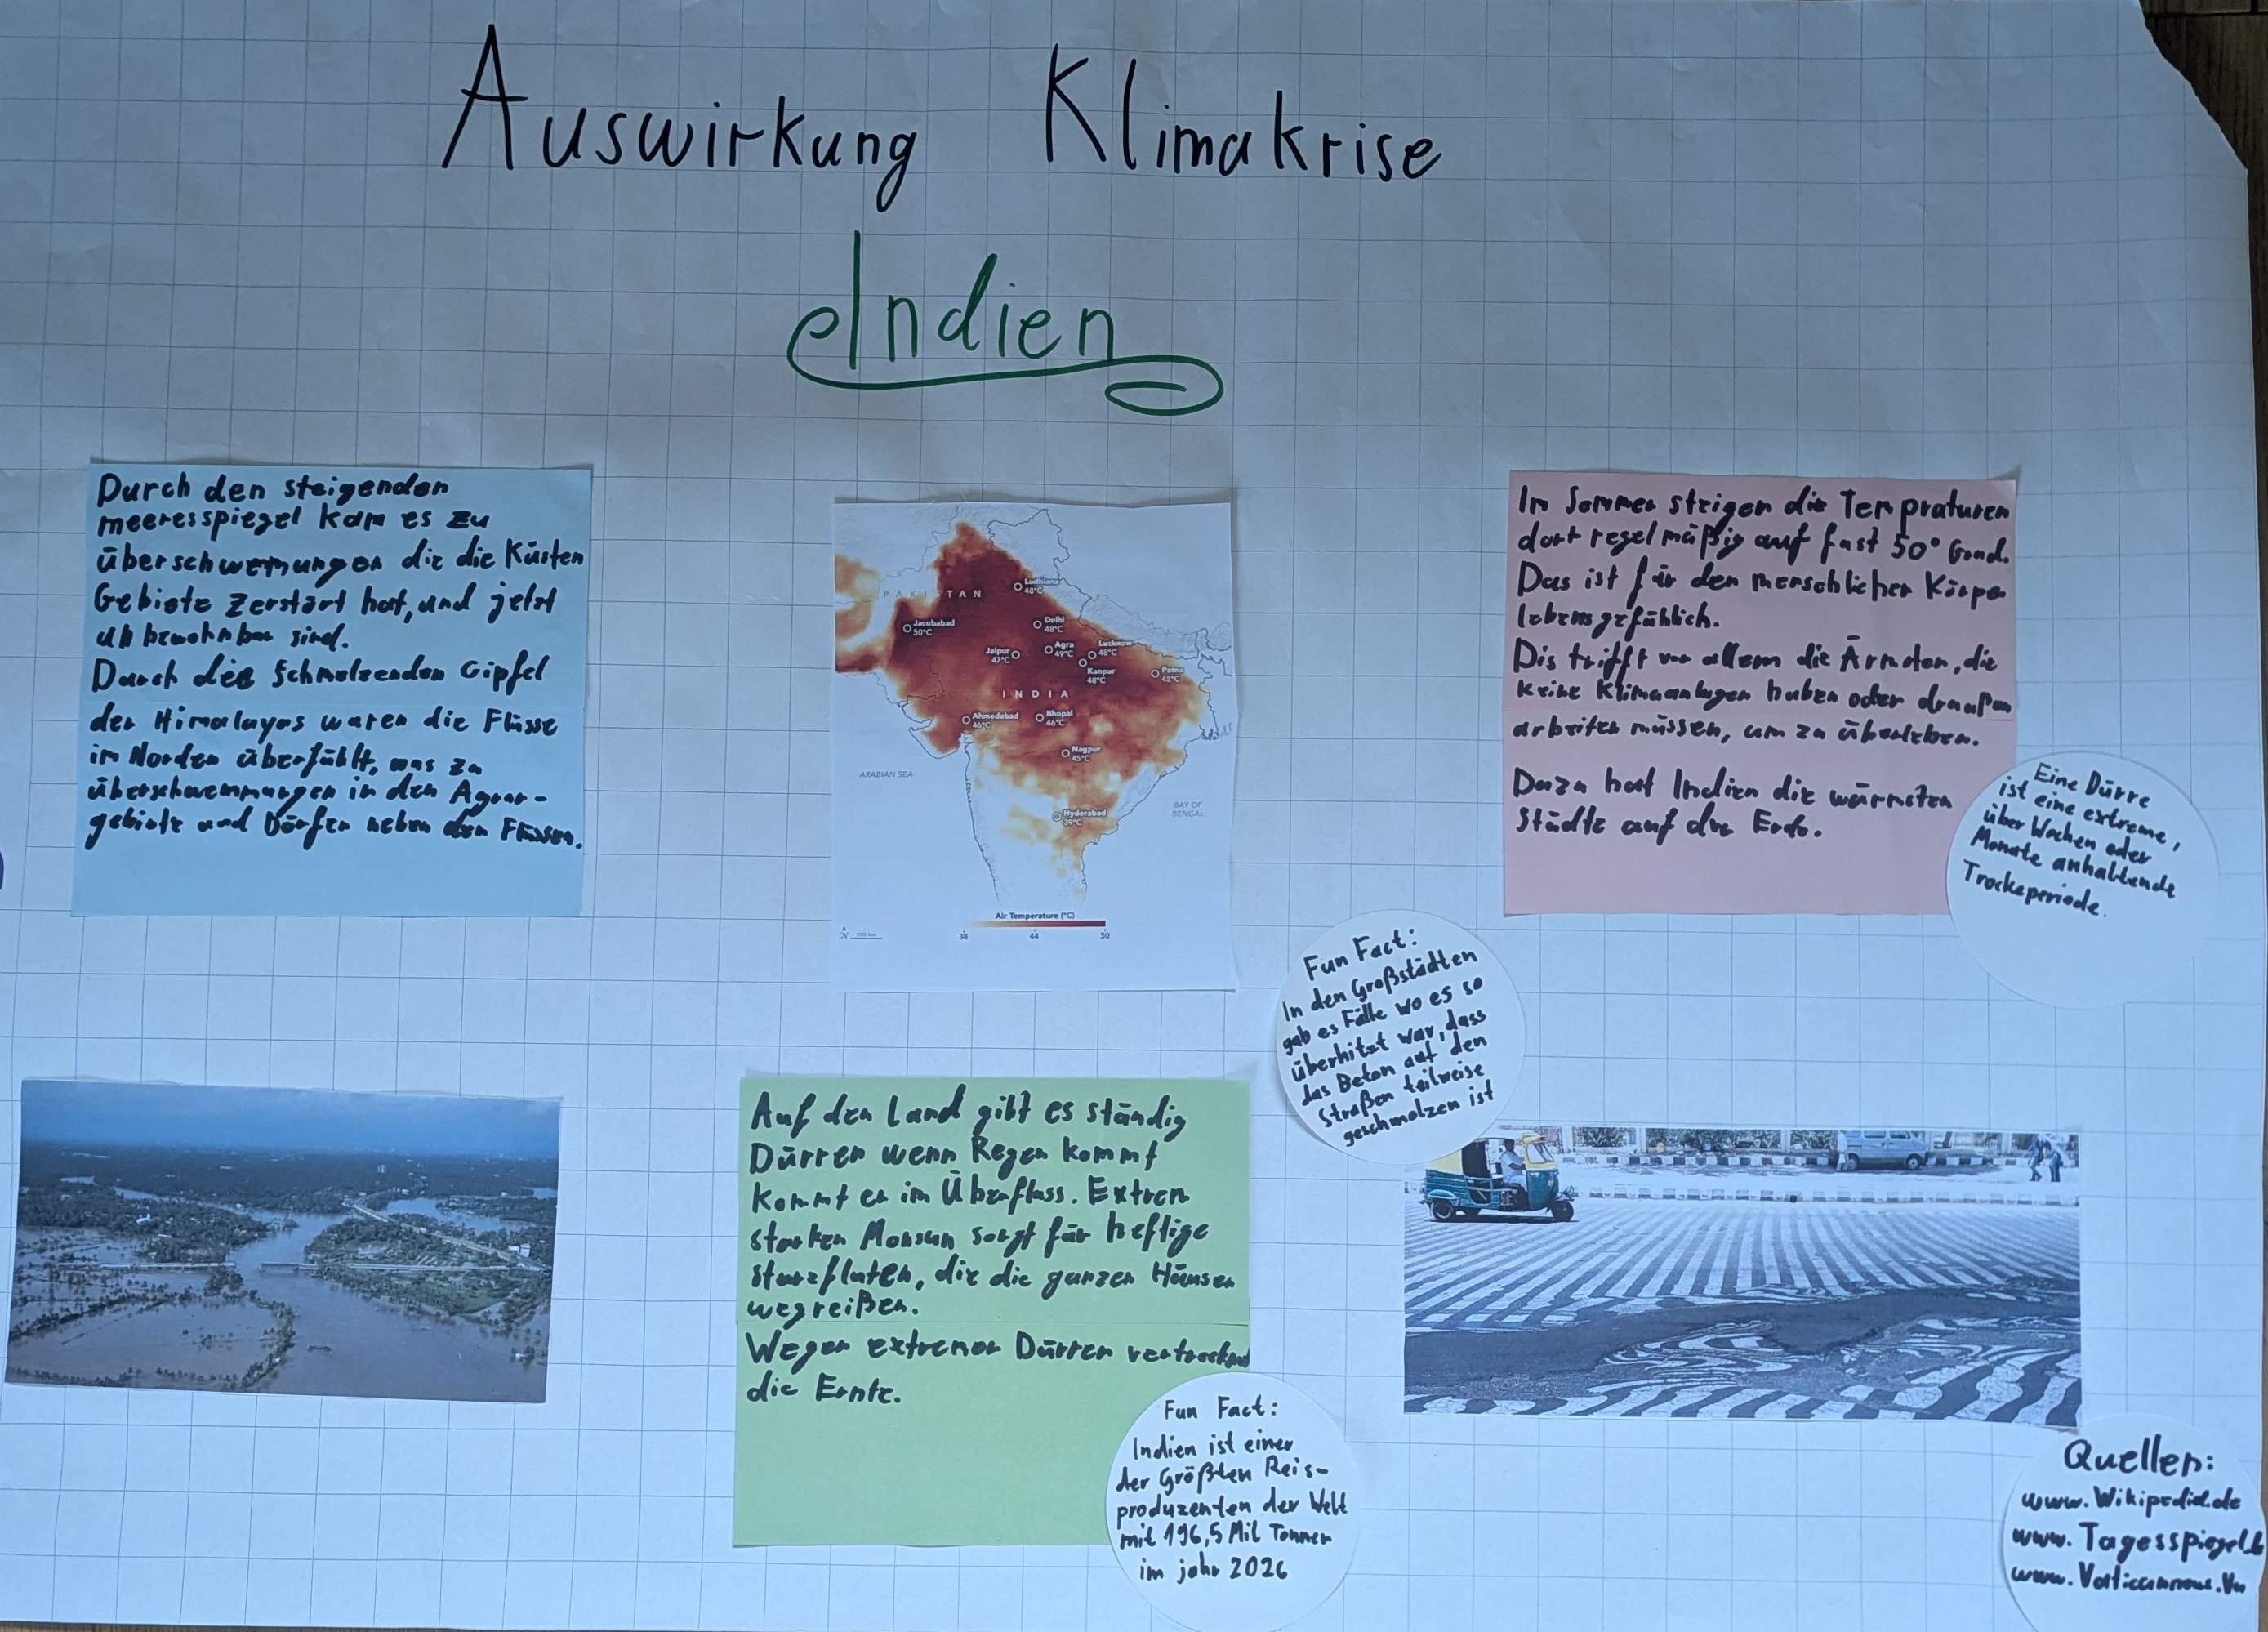 Auswirkung Klimakrise
Indien
Durch den steigenden
meeresspiegel kam es zu
überschwemungen die die Küsten
Gebiete zerstört hat, und jetzt
unbewohnbar sind.
Durch die Schmelzenden Gipfel
der Himalayas waren die Flüsse
im Norden überfühlt, was zu
überschwemmungen in den Agrar-
gebiete und Dörfer neben den Flüssen.
PAKISTAN
Ludhiana
48°C
Jacobabad
50°C
Delhi
48°C
Jaipur
47°C
Agra
49°C
Lucknow
48°C
Kanpur
48°C
Patna
45°C
INDIA
Ahmedabad
46°C
Bhopal
46°C
Nagpur
45°C
ARABIAN SEA
BAY OF
BENGAL
Hyderabad
39°C
Air Temperature (°C)
N
200 km
38 44 50
Im Sommer steigen die Tempraturen
dort regelmäßig auf fast 50° Grad.
Das ist für den menschlichen Körper
lebensgefählich.
Dis trifft vor allem die Ärmsten, die
keine Klimaanlagen haben oder draußen
arbeiten müssen, um zu überleben.
Dazu hat Indien die wärmsten
Städte auf der Erde.
Eine Dürre
ist eine extreme,
über Wochen oder
Monate anhaltende
Trockeperiode.
Fun Fact:
In den Großstädten
gab es Fälle wo es so
überhitzt war, dass
das Beton auf den
Straßen teilweise
geschmolzen ist
Auf den Land gibt es ständig
Dürren wenn Regen kommt
kommt er im Überfluss. Extrem
starken Monsun sorgt für heftige
sturzfluten, die die ganzen Häuser
wegreißen.
Wegen extremer Dürren vertrocknet
die Ernte.
Fun Fact:
Indien ist einer
der Größten Reis-
produzenten der Welt
mit 196,5 Mil Tonnen
im jahr 2026
Quellen:
www.Wikipedia.de
www.Tagesspiegel.de
www.Vaticannews.Va